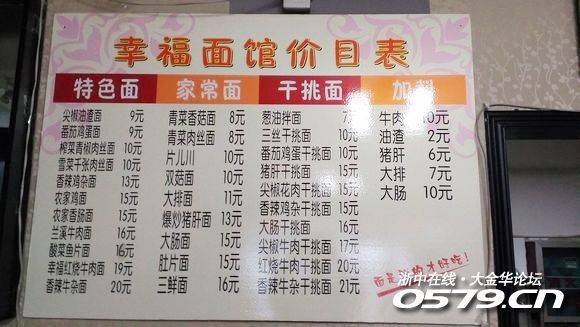 幸福面馆价目表
特色面
尖椒油渣面 9元
番茄鸡蛋面 9元
榨菜青椒肉丝面 10元
雪菜千张肉丝面 10元
香辣鸡杂面 13元
农家鸡面 15元
农家香肠面 15元
兰溪牛肉面 16元
酸菜鱼片面 16元
幸福红烧牛肉面 19元
香辣牛杂面 20元
家常面
青菜香菇面 8元
青菜肉丝面 8元
片儿川 10元
双菇面 10元
大排面 11元
爆炒猪肝面 13元
大肠面 15元
肚片面 15元
三鲜面 16元
干挑面
葱油拌面 7元
三丝干挑面
番茄鸡蛋干挑面
猪肝干挑面 15元
尖椒花肉干挑面 15元
香辣鸡杂干挑面 15元
大肠干挑面 16元
尖椒牛肉干挑面 17元
红烧牛肉干挑面 20元
香辣牛杂干挑面 21元
加料
牛肉 10元
油渣 2元
猪肝 6元
大排 7元
大肠 10元
面是 才好吃!
浙中在线·大金华论坛
0579.cn